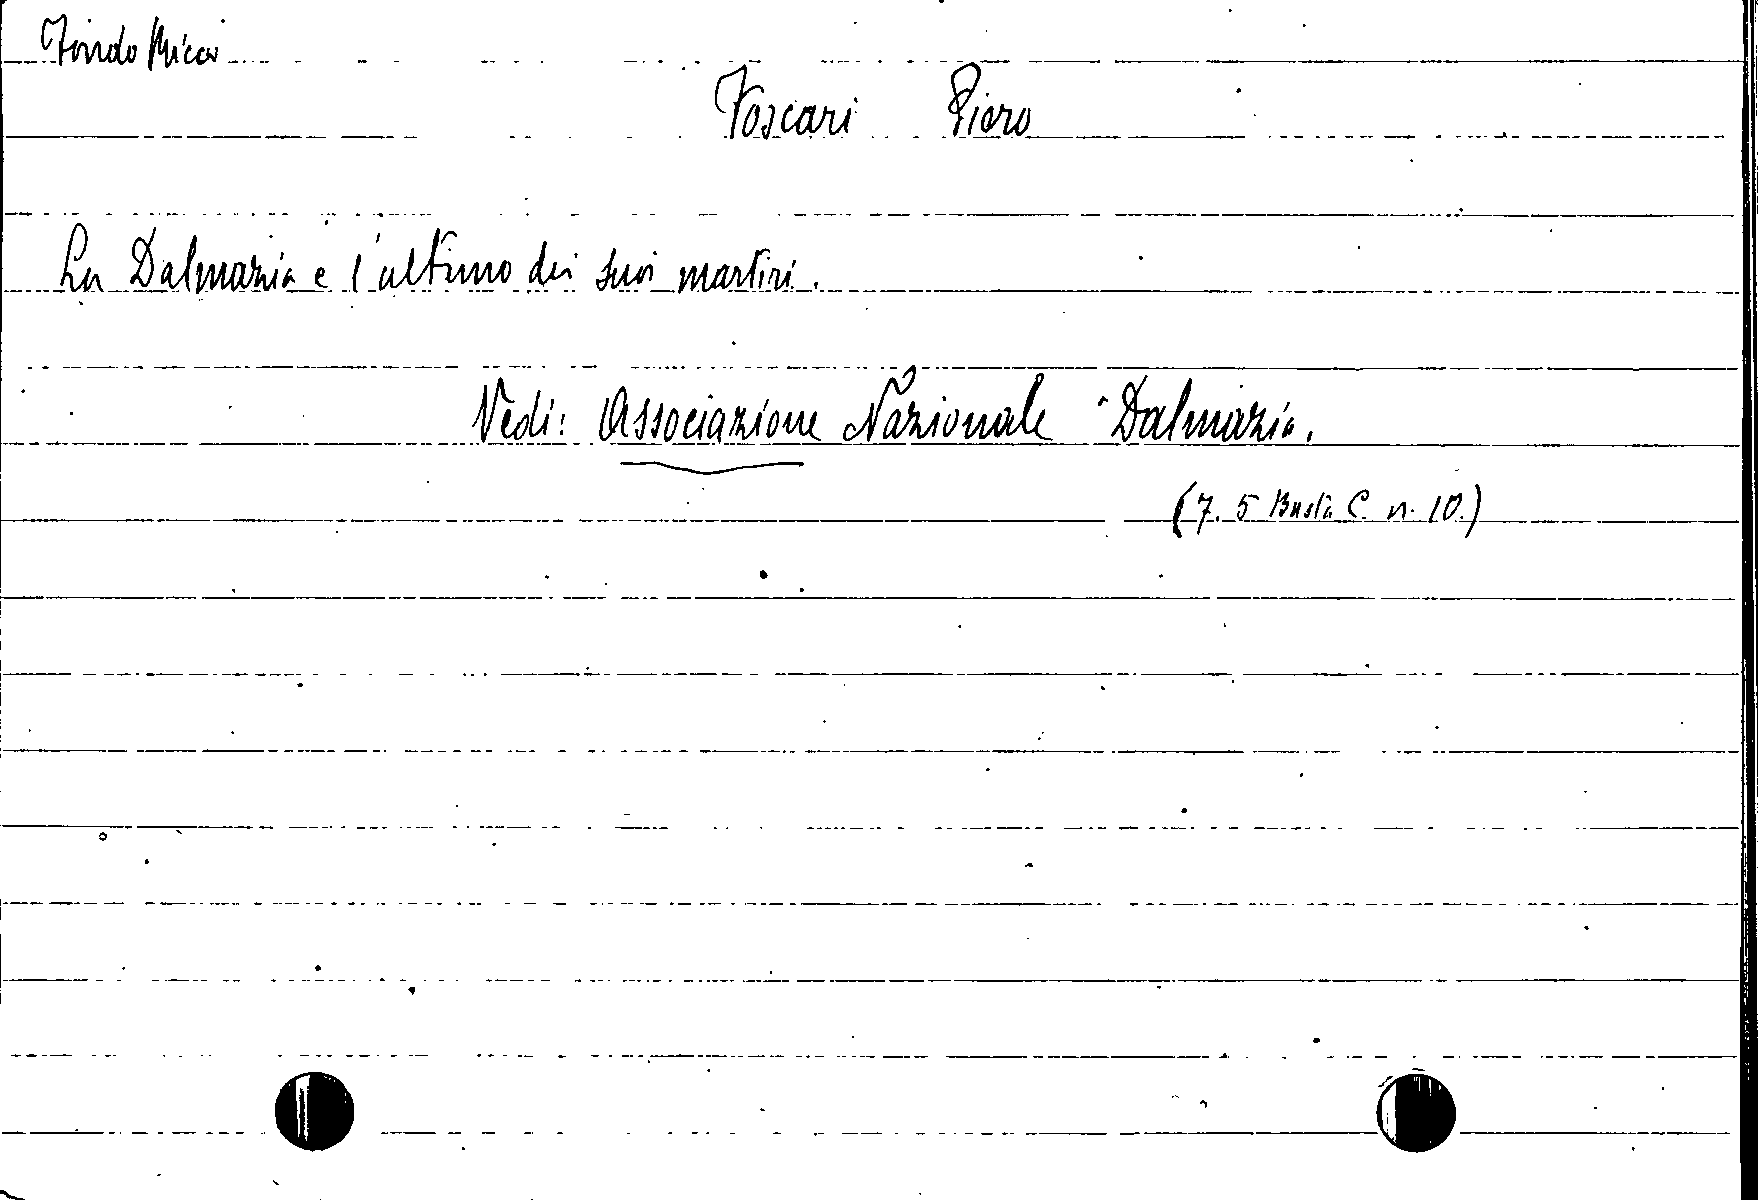 Fondo Micca
Foscari Piero
La Dalmazia e l'ultimo dei suoi martiri.
Vedi: Associazione Nazionale "Dalmazia.
(7. 5 Busta C. n. 10.)